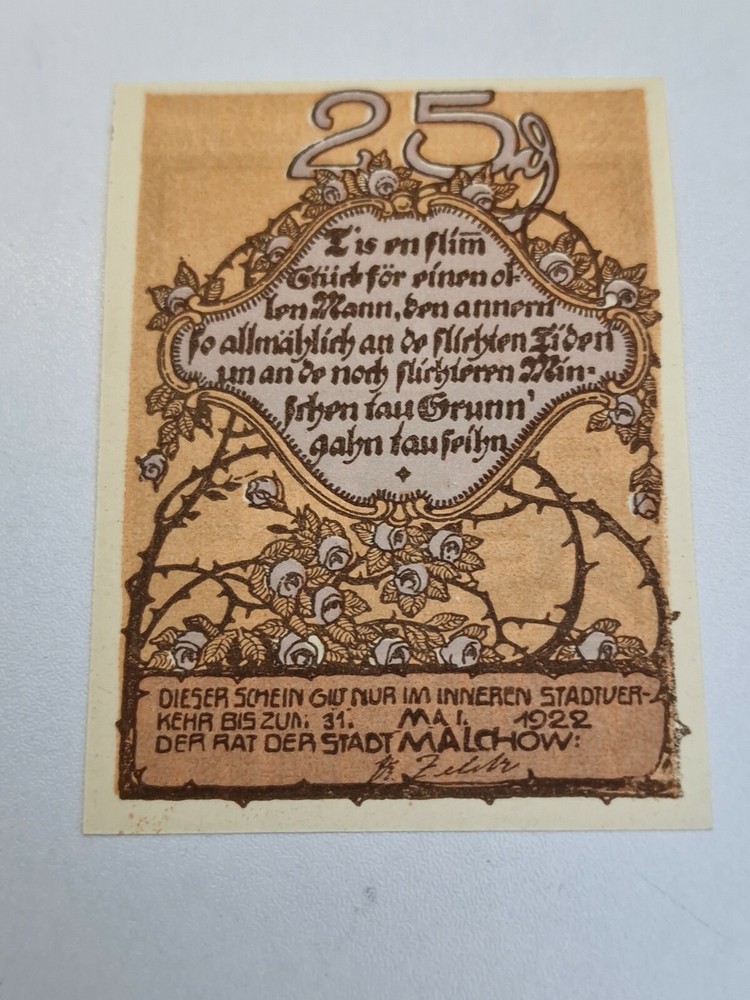 25 ₰
T is en slim̅
Stück för einen ol-
len Mann, den annern
so allmählich an de slichten Tiden
un an de noch slichteren Min-
schen tau Grunn'
gahn tau seihn
DIESER SCHEIN GILT NUR IM INNEREN STADTVER-
KEHR BIS ZUM: 31. MAI. 1922
DER RAT DER STADT MALCHOW: